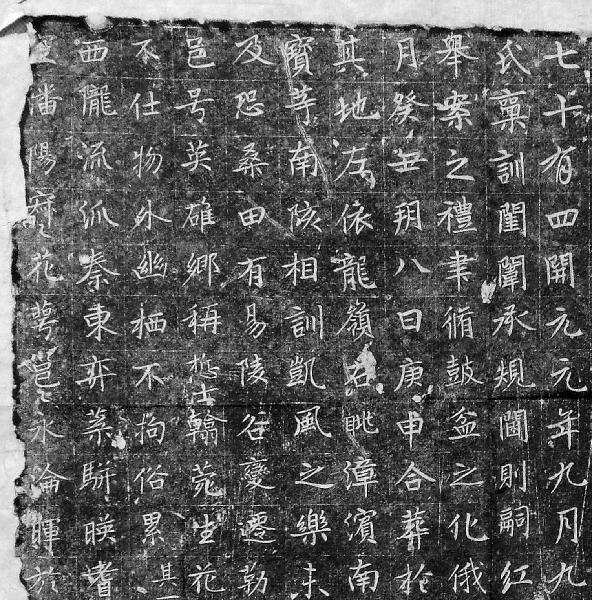 七十有四開元元年九月九
氏稟訓閨闈承規閫則嗣紅
舉案之禮聿脩鼓盆之化俄
月癸丑朔八日庚申合葬於
其地左依龍嶺右眺漳濱南
寶等南陔相訓凱風之樂未
及恐桑田有易陵谷變遷勒
邑号英雄鄉稱翰菀生花
不仕物外幽栖不拘俗累其
西隴流派秦東弈葉駢暎
潘陽花萼邕邕永淪暉於